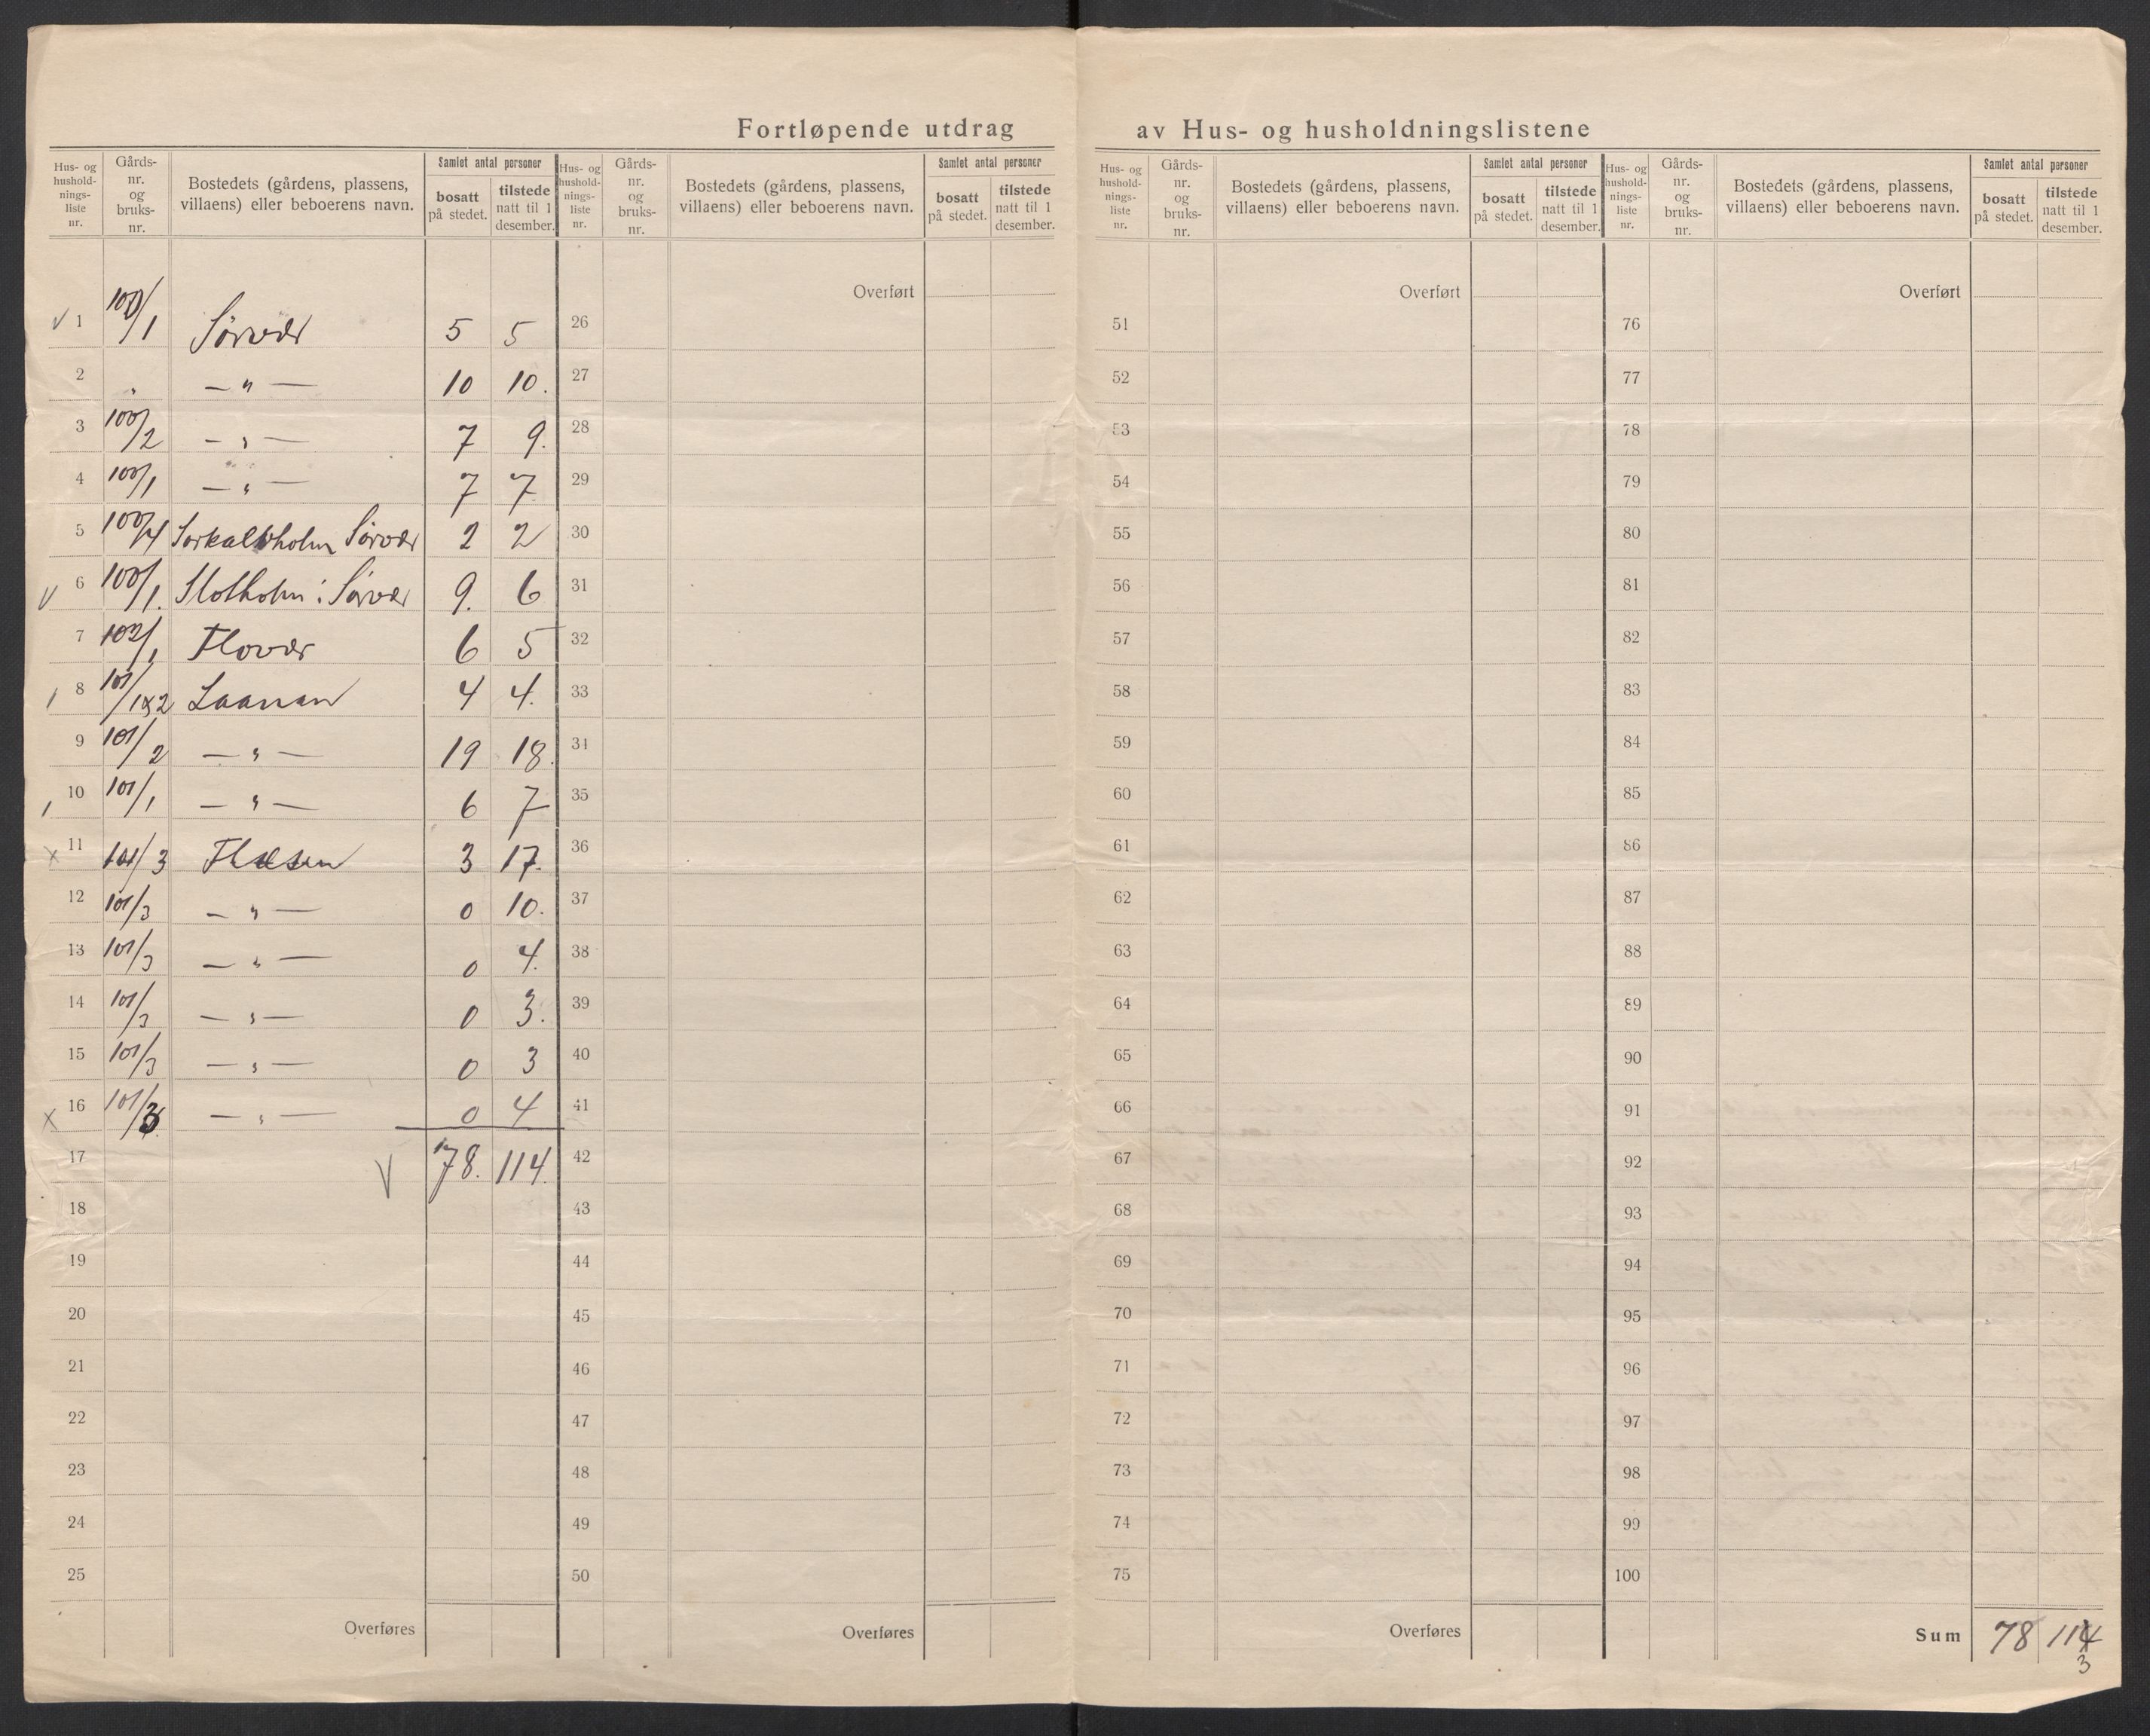 Fortløpende utdrag av Hus- og husholdningslistene
Hus- og hushold-nings-liste nr. Gårds-nr. og bruks-nr. Bostedets (gårdens, plassens, villaens) eller beboerens navn. Samlet antal personer bosatt på stedet. tilstede natt til 1 desember.
Hus- og hushold-nings-liste nr. Gårds-nr. og bruks-nr. Bostedets (gårdens, plassens, villaens) eller beboerens navn. Samlet antal personer bosatt på stedet. tilstede natt til 1 desember.
Hus- og hushold-nings-liste nr. Gårds-nr. og bruks-nr. Bostedets (gårdens, plassens, villaens) eller beboerens navn. Samlet antal personer bosatt på stedet. tilstede natt til 1 desember.
Hus- og hushold-nings-liste nr. Gårds-nr. og bruks-nr. Bostedets (gårdens, plassens, villaens) eller beboerens navn. Samlet antal personer bosatt på stedet. tilstede natt til 1 desember.
Overført Overført Overført
1 100/1 Sørvær 5 5 26 51 76
2 " — " — 10 10. 27 52 77
3 100/2 — " — 7 9. 28 53 78
4 100/1 — " — 7 7 29 54 79
5 100/4 Sørvær 2 2 30 55 80
6 100/1. i Sørvær 9. 6 31 56 81
7 102/1 Flovær 6 5 32 57 82
8 101/1&2 Laanan 4 4. 33 58 83
9 101/2 — " — 19 18. 34 59 84
10 101/1 — " — 6 7 35 60 85
x 11 101/3 Flæsen 3 17. 36 61 86
12 101/3 — " — 0 10. 37 62 87
13 101/3 — " — 0 4. 38 63 88
14 101/3 — " — 0 3. 39 64 89
15 101/3 — " — 0 3 40 65 90
x 16 101/3 — " — 0 4 41 66 91
17 78. 114. 42 67 92
18 43 68 93
19 44 69 94
20 45 70 95
21 46 71 96
22 47 72 97
23 48 73 98
24 49 74 99
25 50 75 100
Overføres Overføres Overføres Sum 78 114
3